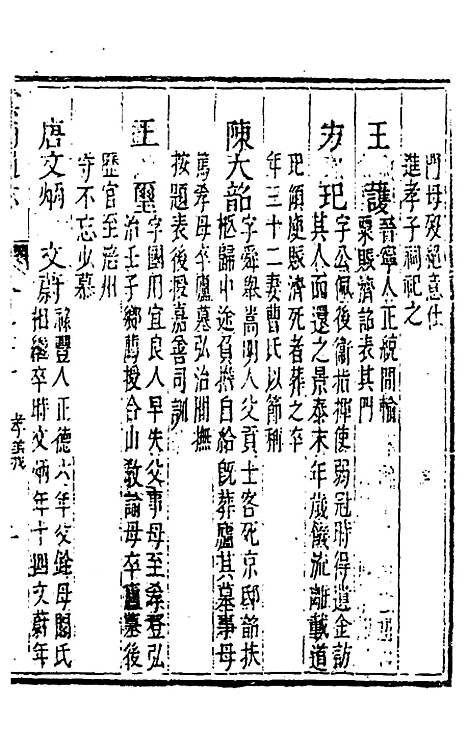 門母歿絕意仕
進孝子祠祀之
王護晉寧人正統間輸
粟賑濟詔表其門
方玘字公佩後衛指揮使弱冠時得遺金訪
其人而還之景泰末年歲饑流離載道
玘傾廩賑濟死者葬之卒
年三十二妻曹氏以節稱
陳大韶字舜舉嵩明人父貢士客死京邸韶扶
柩歸中途負擔自給既葬廬其墓事母
篤孝母卒廬墓弘治間撫
按題表後授嘉善司訓
王璽字國用宜良人早失父事母至孝登弘
治壬子鄉薦授合山教諭母卒廬墓後
歷官至
守不忘少慕
唐文炳 文蔚祿豐人正德六年父銓母閻氏
相繼卒時文炳年十四文蔚年
孝義